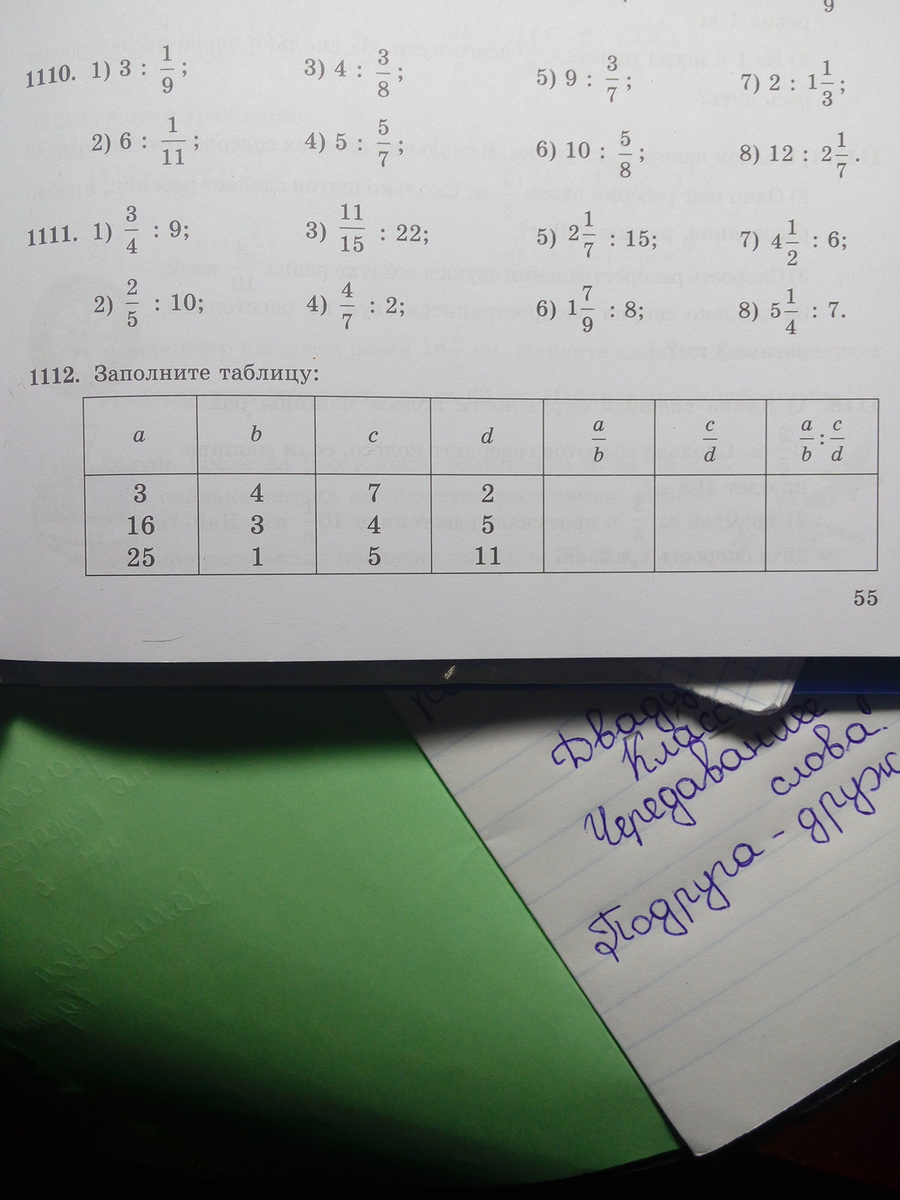 9
1110. 1) 3 : 1/9; 3) 4 : 3/8; 5) 9 : 3/7; 7) 2 : 1 1/3;
2) 6 : 1/11; 4) 5 : 5/7; 6) 10 : 5/8; 8) 12 : 2 1/7.
1111. 1) 3/4 : 9; 3) 11/15 : 22; 5) 2 1/7 : 15; 7) 4 1/2 : 6;
2) 2/5 : 10; 4) 4/7 : 2; 6) 1 7/9 : 8; 8) 5 1/4 : 7.
1112. Заполните таблицу:
a b c d a/b c/d a/b : c/d
3 4 7 2
16 3 4 5
25 1 5 11
55
Класс
Чередавание
слова.
Подруга - друж